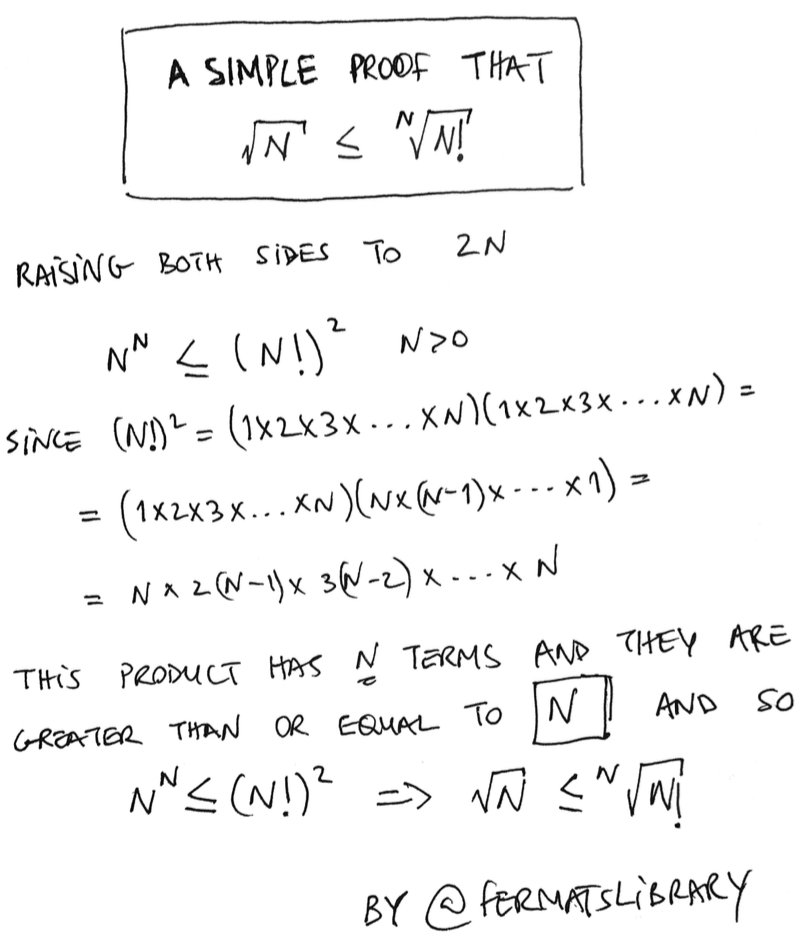 A SIMPLE PROOF THAT
√N ≤ ᴺ√N!
RAISING BOTH SIDES TO 2N
Nᴺ ≤ (N!)² N>0
SINCE (N!)² = (1×2×3×...×N)(1×2×3×...×N) =
= (1×2×3×...×N)(N×(N-1)×...×1) =
= N × 2(N-1)× 3(N-2) × ... × N
THIS PRODUCT HAS N TERMS AND THEY ARE
GREATER THAN OR EQUAL TO N AND SO
Nᴺ ≤ (N!)² => √N ≤ ᴺ√N!
BY @FERMATSLIBRARY